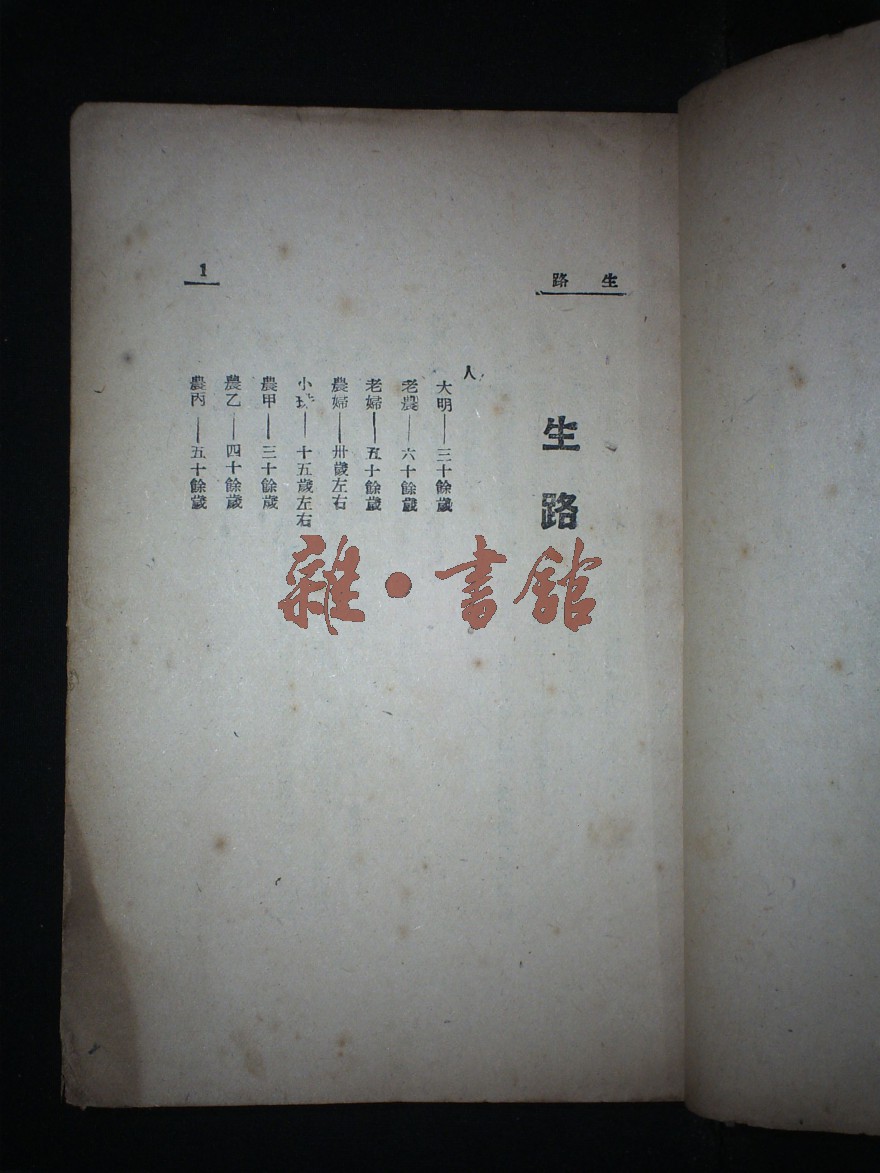 生路
1
生路
人
大明——三十餘歲
老農——六十餘歲
老婦——五十餘歲
農婦——卅歲左右
小珠——十五歲左右
農甲——三十餘歲
農乙——四十餘歲
農丙——五十餘歲
雜·書館